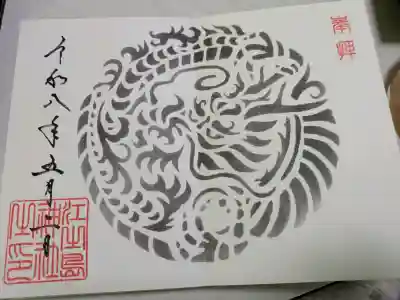 奉拝
令和八年五月 日
江島
神社
之印